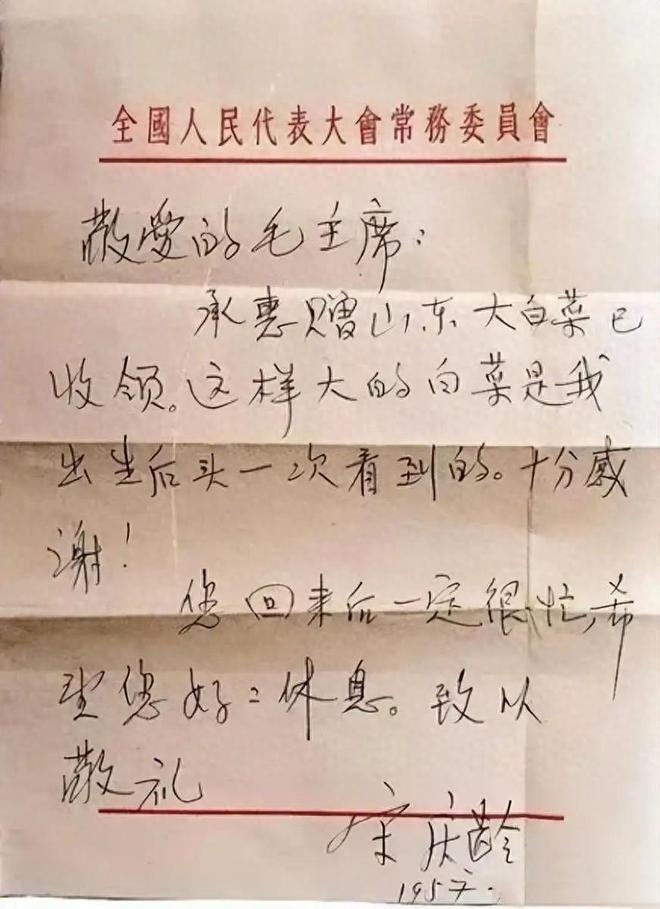 全國人民代表大會常務委員會
敬爱的毛主席：
承惠赠山东大白菜已
收领。这样大的白菜是我
出生后头一次看到的。十分感
谢！
您回来后一定很忙，希
望您好二休息。致以
敬礼
宋庆龄
1957.